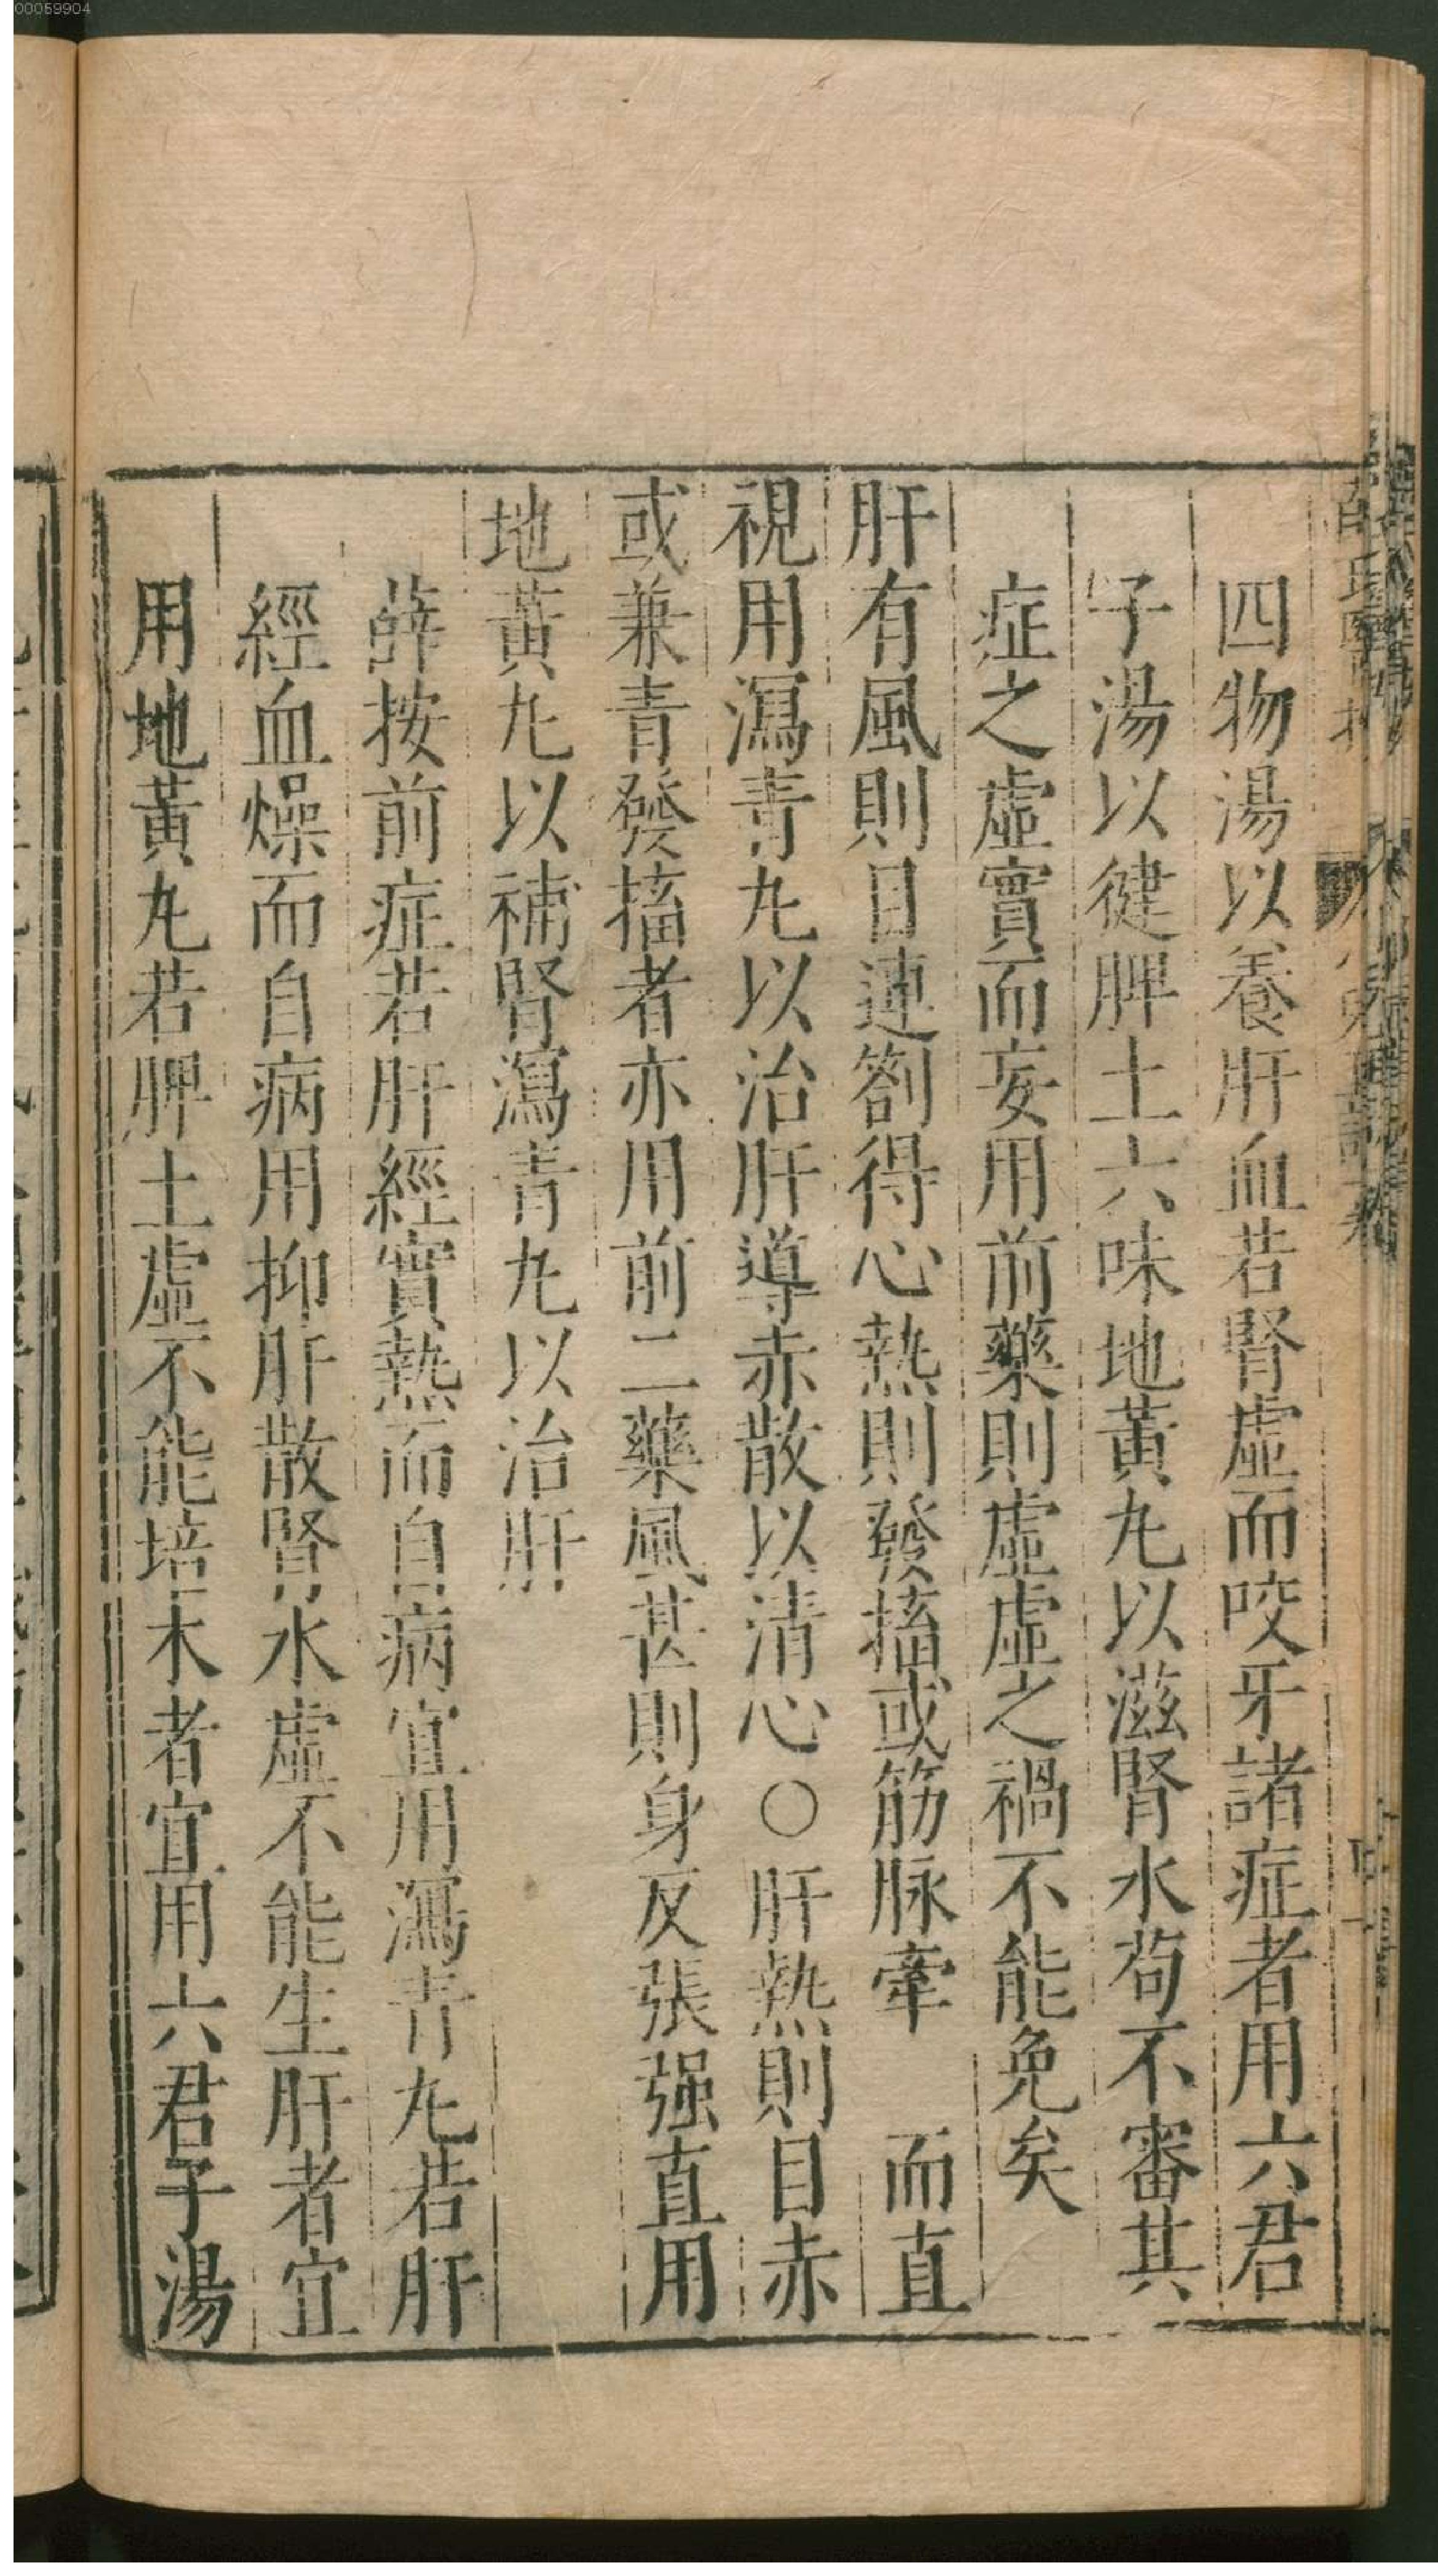 00059904
四物湯以養肝血若腎虛而咬牙諸症者用六君
子湯以健脾土六味地黃丸以滋腎水苟不審其
症之虛實而妄用前藥則虛虛之禍不能免矣
肝有風則目連劄得心熱則發搐或筋脉牽 而直
視用瀉青丸以治肝導赤散以清心○肝熱則目赤
或兼青發搐者亦用前二藥風甚則身反張强直用
地黃丸以補腎瀉青丸以治肝
薛按前症若肝經實熱而自病宜用瀉青丸若肝
經血燥而自病用抑肝散腎水虛不能生肝者宜
用地黃丸若脾土虛不能培木者宜用六君子湯